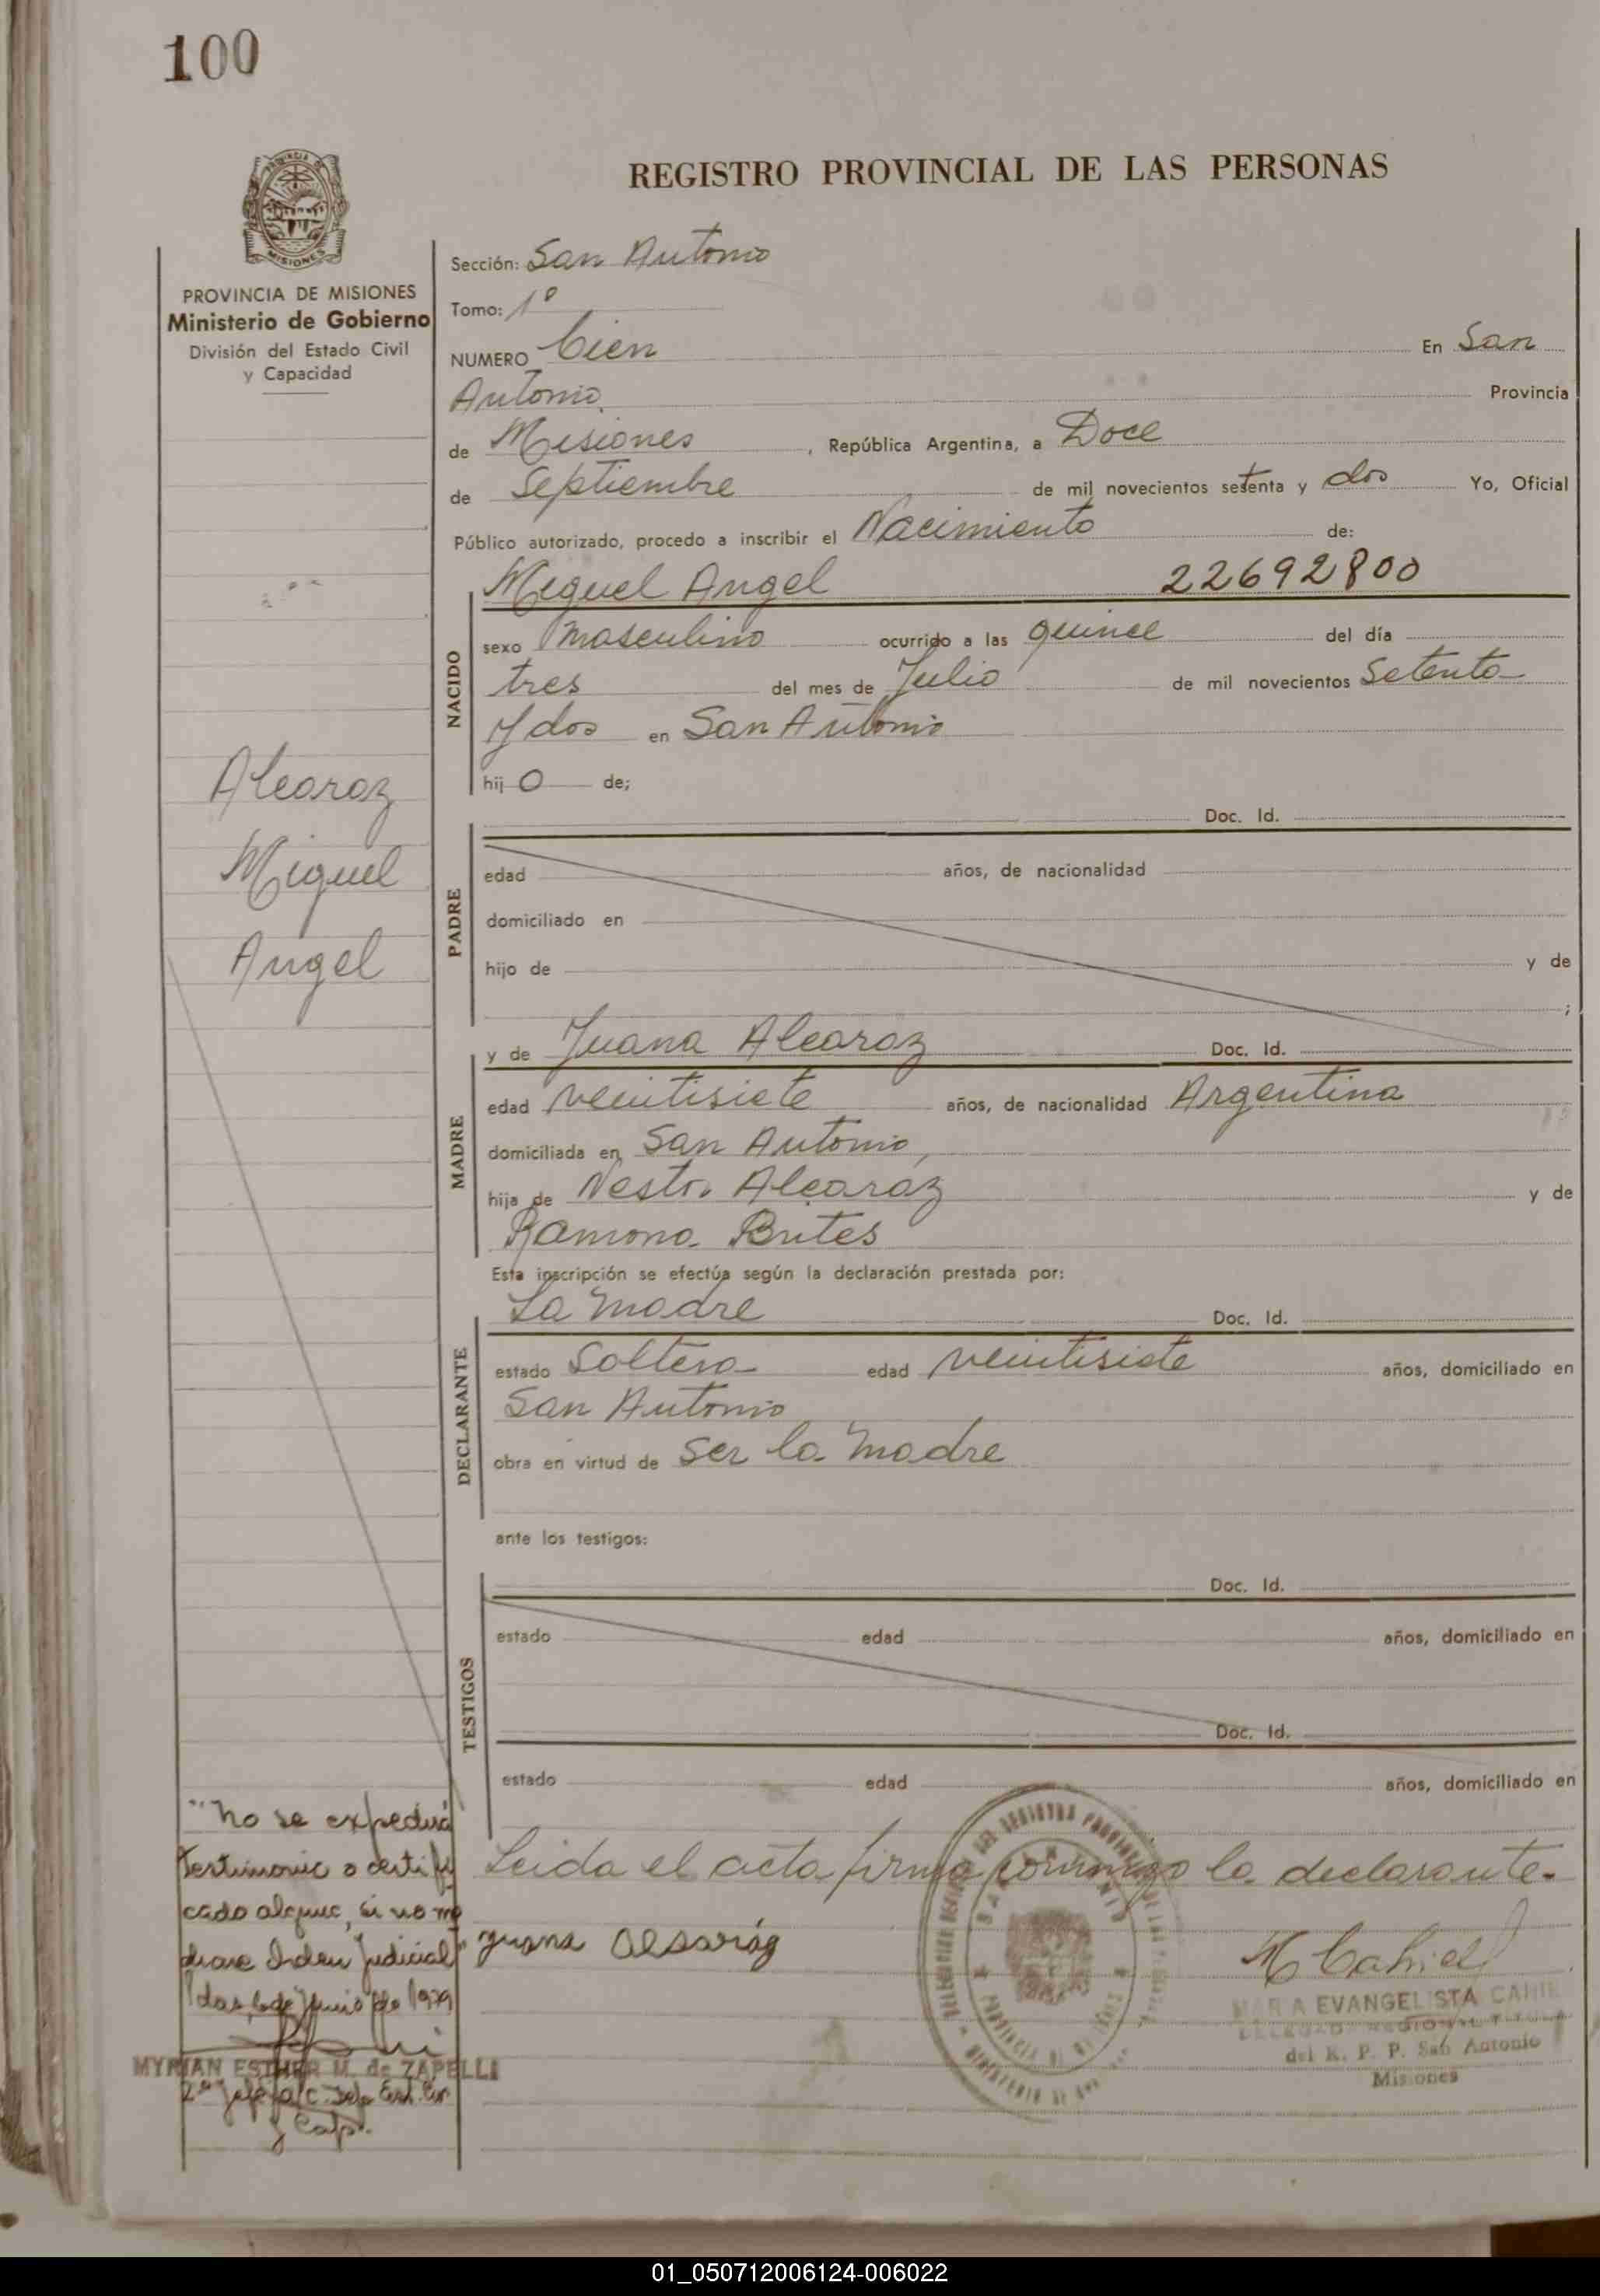 100
REGISTRO PROVINCIAL DE LAS PERSONAS
MISIONES
PROVINCIA DE MISIONES
Ministerio de Gobierno
División del Estado Civil
y Capacidad
Alcaraz
Miguel
Angel
Sección: San Antonio
Tomo: 1º
NUMERO Cien En San
Antonio Provincia
de Misiones, República Argentina, a Doce
de Septiembre de mil novecientos setenta y dos Yo, Oficial
Público autorizado, procedo a inscribir el Nacimiento de:
NACIDO
Miguel Angel 22692800
sexo Masculino ocurrido a las quince del día
tres del mes de Julio de mil novecientos Setenta
y dos en San Antonio
hij o de;
PADRE
Doc. Id.
edad años, de nacionalidad
domiciliado en
hijo de y de
;
MADRE
y de Juana Alcaraz Doc. Id.
edad veintisiete años, de nacionalidad Argentina
domiciliada en San Antonio,
hija de Nestor Alcaraz y de
Ramona Brites
Esta inscripción se efectúa según la declaración prestada por:
DECLARANTE
La Madre Doc. Id.
estado Soltera edad veintisiete años, domiciliado en
San Antonio
obra en virtud de Ser la Madre
ante los testigos:
TESTIGOS
Doc. Id.
estado edad años, domiciliado en
Doc. Id.
estado edad años, domiciliado en
Leida el acta firma conmigo la declarante.
Juana Alsaráz
M Cahiel
MARIA EVANGELISTA CAHIEL
DELEGADA REGIONAL TITULAR
del R. P. P. San Antonio
Misiones
"No se expedirá
testimonio o certifi
cado alguno, si no me
diare Orden Judicial"
de Junio de 1979
MYRIAN ESTHER M. de ZAPELLI
2º Jefe a/c. Est. Civ.
y Cap.
01_050712006124-006022